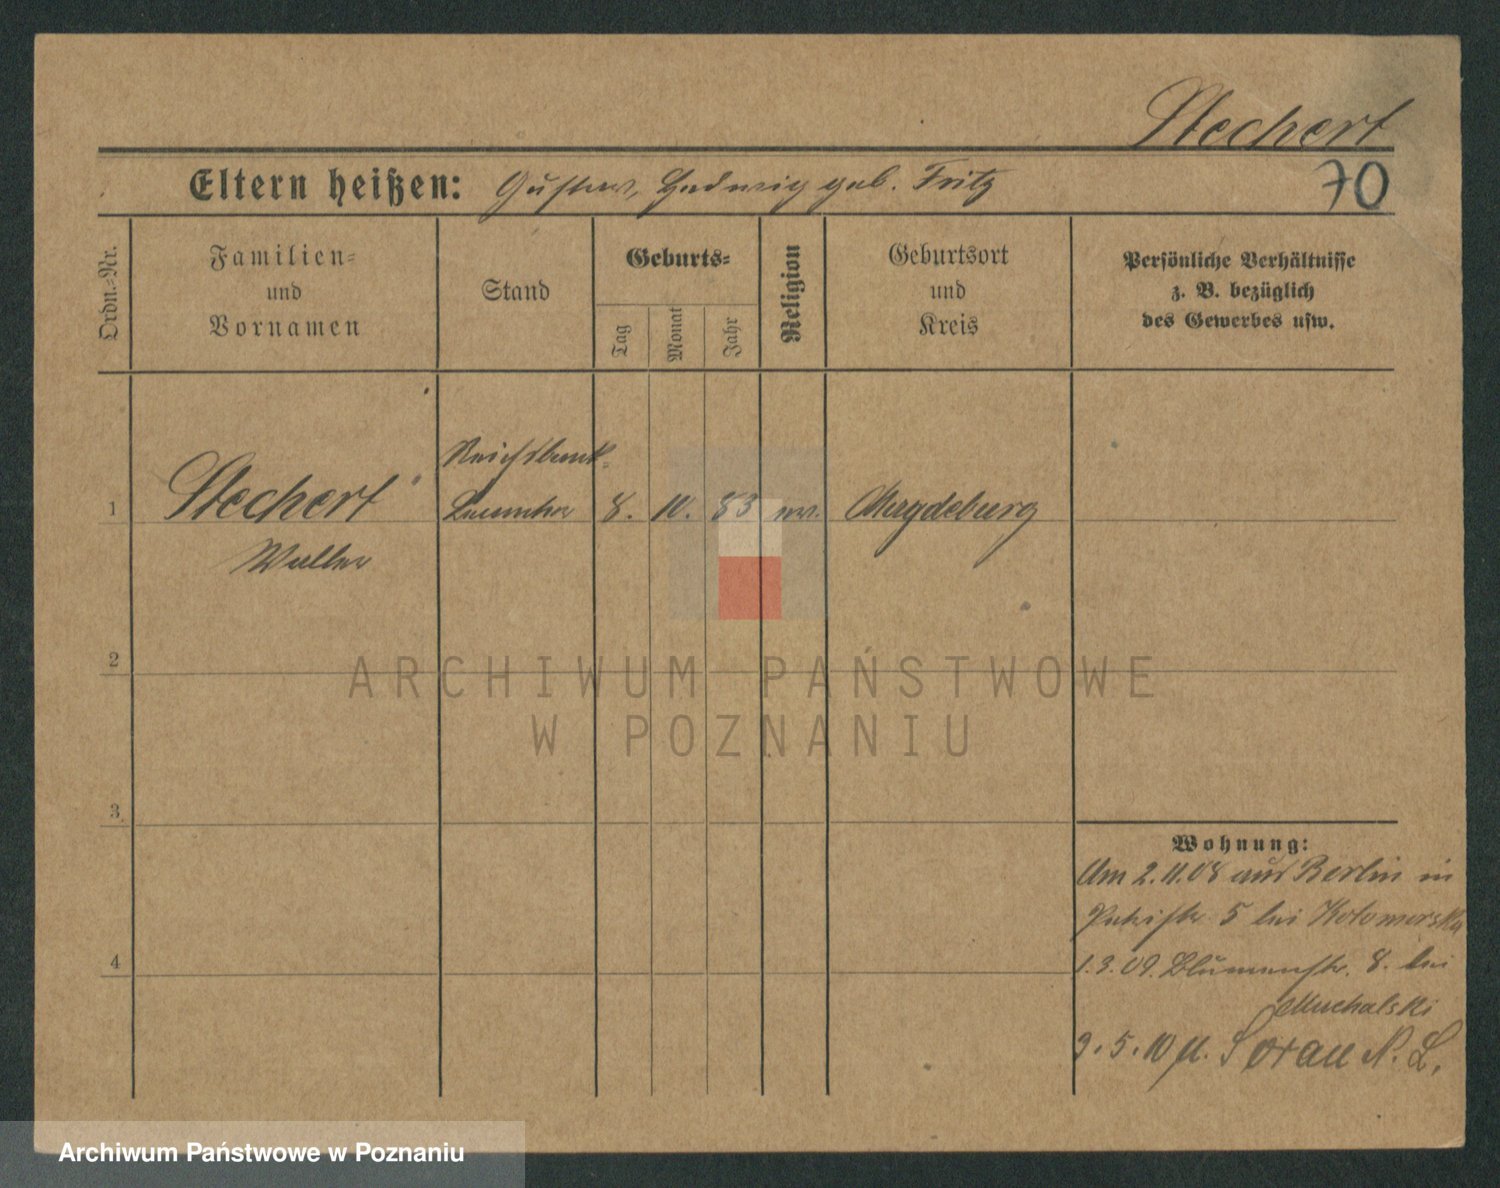 Stechert
Eltern heißen: Gustav, Hedwig geb. Fritz
70
Ordn.-Nr.
Familien-
und
Vornamen
Stand
Geburts-
Tag
Monat
Jahr
Religion
Geburtsort
und
Kreis
Persönliche Verhältnisse
z. B. bezüglich
des Gewerbes usw.
Reichsbank-
1 Stechert 8. 10. 83 ev. Magdeburg
Walter
2
3
4
Wohnung:
Am 2.11.08 aus Berlin in
5 bei
1.3.09. Blumenstr. 8. bei
Muchalski
9.5.10 Sorau N. L.
ARCHIWUM PAŃSTWOWE
W POZNANIU
Archiwum Państwowe w Poznaniu